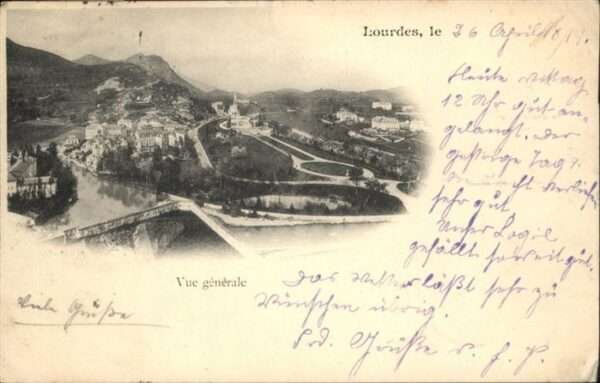 Lourdes, le 26 April
Heute mittag
12 Uhr gut an-
gelangt. der
gestrige Tag
verlief
sehr gut
Unser Logis
gefällt soweit gut.
das Wetter läßt sehr zu
Wünschen übrig.
Grüße
Vue générale
Viele Grüße